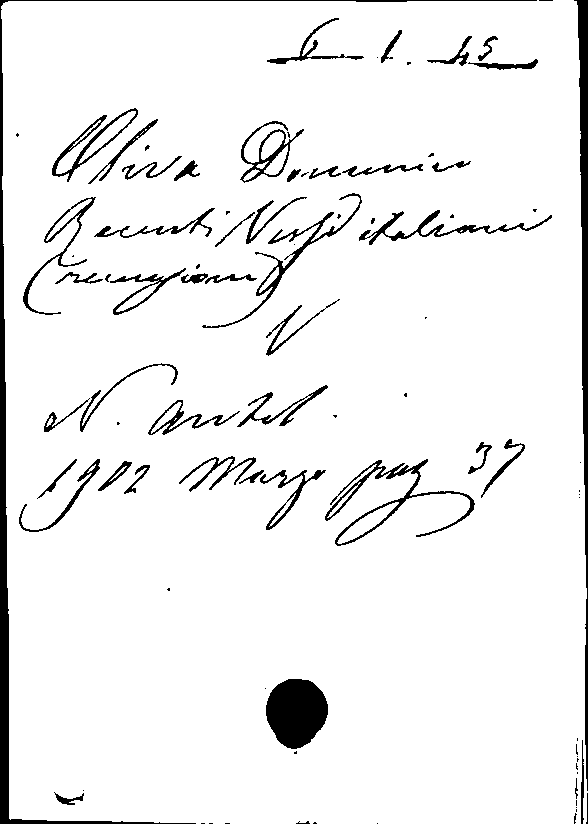 6. 1. 45
Oliva Domenico
Recenti Versi italiani
(recensioni)
V
N. Antol.
1902 Marzo pag 37